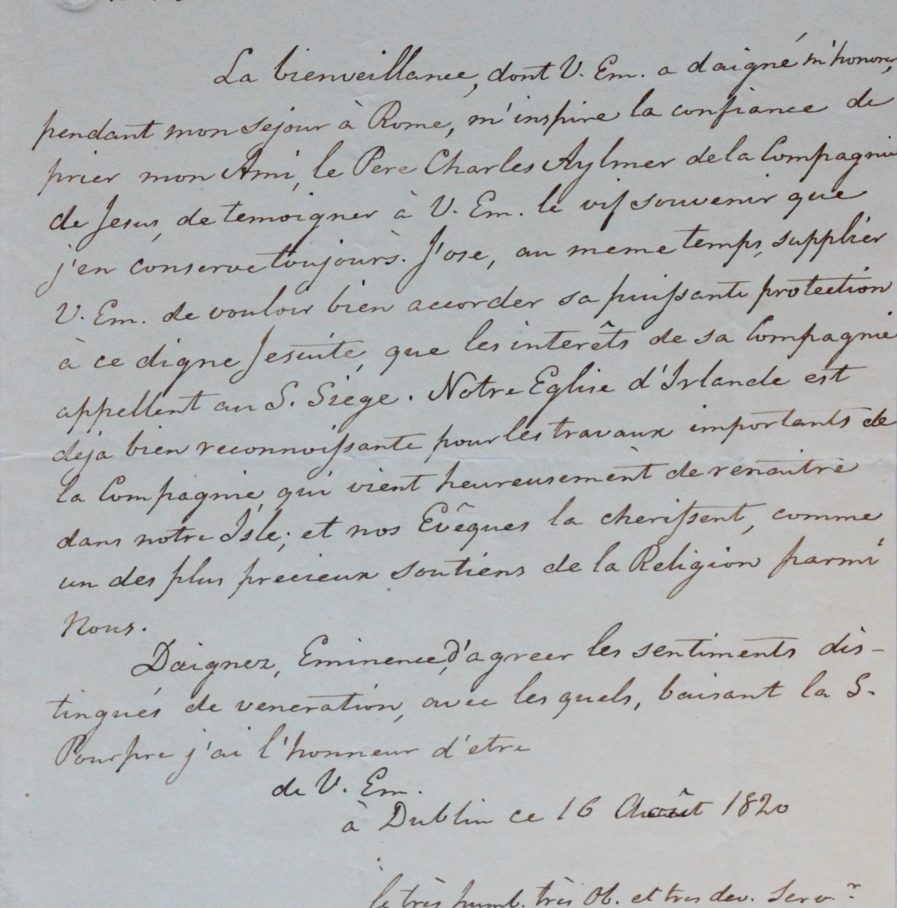 La bienveillance, dont V. Em. a daigné m'honorer,
pendant mon sejour à Rome, m'inspire la confiance de
prier mon Ami, le Pere Charles Aylmer de la Compagnie
de Jesus, de temoigner à V. Em. le vif souvenir que
j'en conserve toujours. J'ose, au meme temps, supplier
V. Em. de vouloir bien accorder sa puissante protection
à ce digne Jesuite, que les interêts de sa Compagnie
appellent au S. Siege. Notre Eglise d'Irlande est
deja bien reconnoissante pour les travaux importants de
la Compagnie qui vient heureusement de renaitre
dans notre Isle; et nos Evêques la cherissent, comme
un des plus precieux soutiens de la Religion parmi
nous.
Daignez, Eminence, d'agreer les sentiments dis-
tingués de veneration, avec les quels, baisant la S.
Pourpre j'ai l'honneur d'etre
de V. Em.
à Dublin ce 16 Août 1820
le très humb. très Ob. et tres dev. Servr.